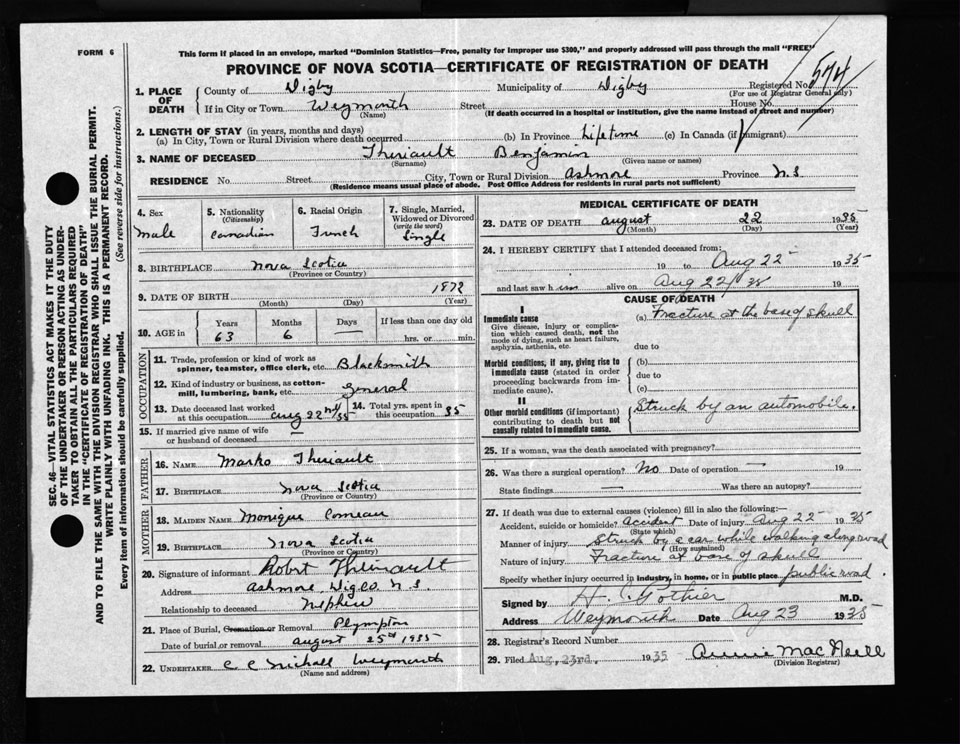 FORM 6
This form if placed in an envelope, marked "Dominion Statistics—Free, penalty for improper use $300," and properly addressed will pass through the mail "FREE"
PROVINCE OF NOVA SCOTIA—CERTIFICATE OF REGISTRATION OF DEATH
574
1. PLACE OF DEATH
County of Digby Municipality of Digby Registered No.
(For use of Registrar General only)
If in City or Town Weymouth Street House No.
(Name) (If death occurred in a hospital or institution, give the name instead of street and number)
2. LENGTH OF STAY (in years, months and days)
(a) In City, Town or Rural Division where death occurred (b) In Province Lifetime (c) In Canada (if immigrant)
3. NAME OF DECEASED Theriault Benjamin
(Surname) (Given name or names)
RESIDENCE No. Street City, Town or Rural Division Ashmore Province N.S
(Residence means usual place of abode. Post Office Address for residents in rural parts not sufficient)
4. Sex male
5. Nationality (Citizenship) Canadian
6. Racial Origin French
7. Single, Married, Widowed or Divorced (write the word) Single
8. BIRTHPLACE Nova Scotia
(Province or Country)
9. DATE OF BIRTH 1872
(Month) (Day) (Year)
10. AGE in Years Months Days If less than one day old
63 6 hrs. or min.
OCCUPATION
11. Trade, profession or kind of work as spinner, teamster, office clerk, etc. Blacksmith
12. Kind of industry or business, as cotton-mill, lumbering, bank, etc. General
13. Date deceased last worked at this occupation Aug 22nd/35 14. Total yrs. spent in this occupation 35
15. If married give name of wife or husband of deceased —
FATHER
16. NAME Marko Theriault
17. BIRTHPLACE Nova Scotia
(Province or Country)
MOTHER
18. MAIDEN NAME Monique Comeau
19. BIRTHPLACE Nova Scotia
(Province or Country)
20. Signature of informant Robert Theriault
Address Ashmore, Digco. N.S.
Relationship to deceased Nephew
21. Place of Burial, Cremation or Removal Plympton
Date of burial or removal August 25th 1935
22. UNDERTAKER Weymouth
(Name and address)
MEDICAL CERTIFICATE OF DEATH
23. DATE OF DEATH August 22 1935
(Month) (Day) (Year)
24. I HEREBY CERTIFY that I attended deceased from:
19 to Aug 22 1935
and last saw him alive on Aug 22/35 19
CAUSE OF DEATH
I
Immediate cause (a) Fracture at the base of skull
Give disease, injury or complication which caused death, not the mode of dying, such as heart failure, asphyxia, asthenia, etc.
due to
Morbid conditions, if any, giving rise to immediate cause (stated in order proceeding backwards from immediate cause).
(b)
due to
(c)
II
Other morbid conditions (if important) contributing to death but not causally related to immediate cause.
Struck by an automobile.
25. If a woman, was the death associated with pregnancy?
26. Was there a surgical operation? No Date of operation — 19
State findings — Was there an autopsy?
27. If death was due to external causes (violence) fill in also the following:
Accident, suicide or homicide? Accident Date of injury Aug 22 1935
(State which)
Manner of injury Struck by a car while walking along road
(How sustained)
Nature of injury Fracture at base of skull
Specify whether injury occurred in industry, in home, or in public place public road.
Signed by M.D.
Address Weymouth Date Aug 23 1935
28. Registrar's Record Number
29. Filed Aug. 23rd. 1935 Annie MacNeill
(Division Registrar)
SEC. 46—VITAL STATISTICS ACT MAKES IT THE DUTY
OF THE UNDERTAKER OR PERSON ACTING AS UNDER-
TAKER TO OBTAIN ALL THE PARTICULARS REQUIRED
IN THE "CERTIFICATE OF REGISTRATION OF DEATH"
AND TO FILE THE SAME WITH THE DIVISION REGISTRAR WHO SHALL ISSUE THE BURIAL PERMIT.
WRITE PLAINLY WITH UNFADING INK. THIS IS A PERMANENT RECORD.
Every item of information should be carefully supplied. (See reverse side for instructions.)